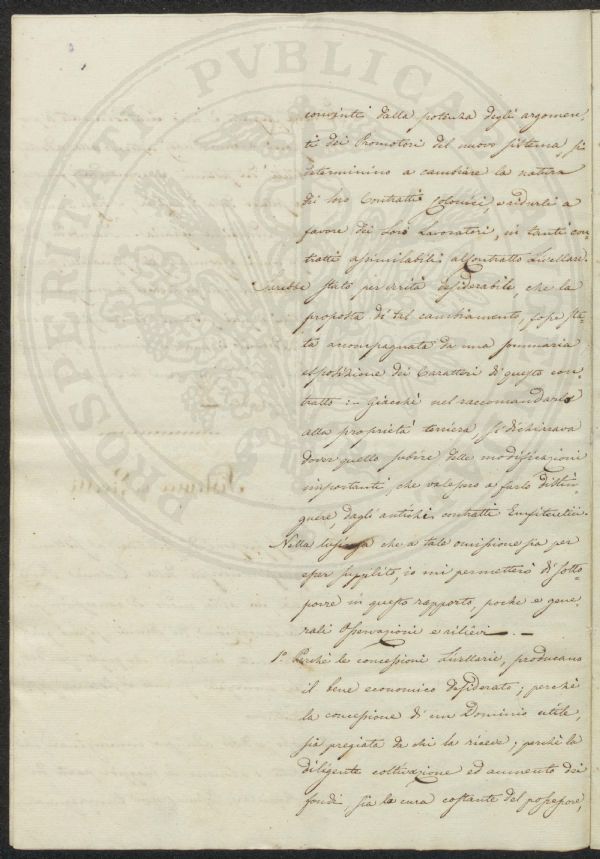 PROSPERITATI PVBLICAE
convinti dalla potenza degli argomen„
ti dei Promotori del nuovo sistema, si
determinino a cambiare la natura
dei loro Contratti Colonici, e ridurli a
favore dei loro Lavoratori, in tanti con„
tratti assimilabili al Contratto Livellare.
Sarebbe stato per verità desiderabile, che la
proposta di tal cambiamento, fosse sta„
ta accompagnata da una sommaria
esposizione dei Caratteri di questo con„
tratto :- Giacchè nel raccomandarlo
alla proprietà terriera, si dichiarava
dover quello subire delle modificazioni
importanti, che valessero a farlo distin„
guere, dagli antichi contratti Enfiteutici.
Nella lusinga che a tale omissione sia per
esser supplito, io mi permetterò di sotto„
porre in questo rapporto, poche e gene„
rali Osservazioni e rilievi. —
1.° Perchè le concessioni Livellarie, producano
il bene economico desiderato; perchè
la concessione di un Dominio utile,
sia pregiata da chi la riceve; perchè la
diligente coltivazione ed aumento dei
fondi, sia la cura costante del possessore,